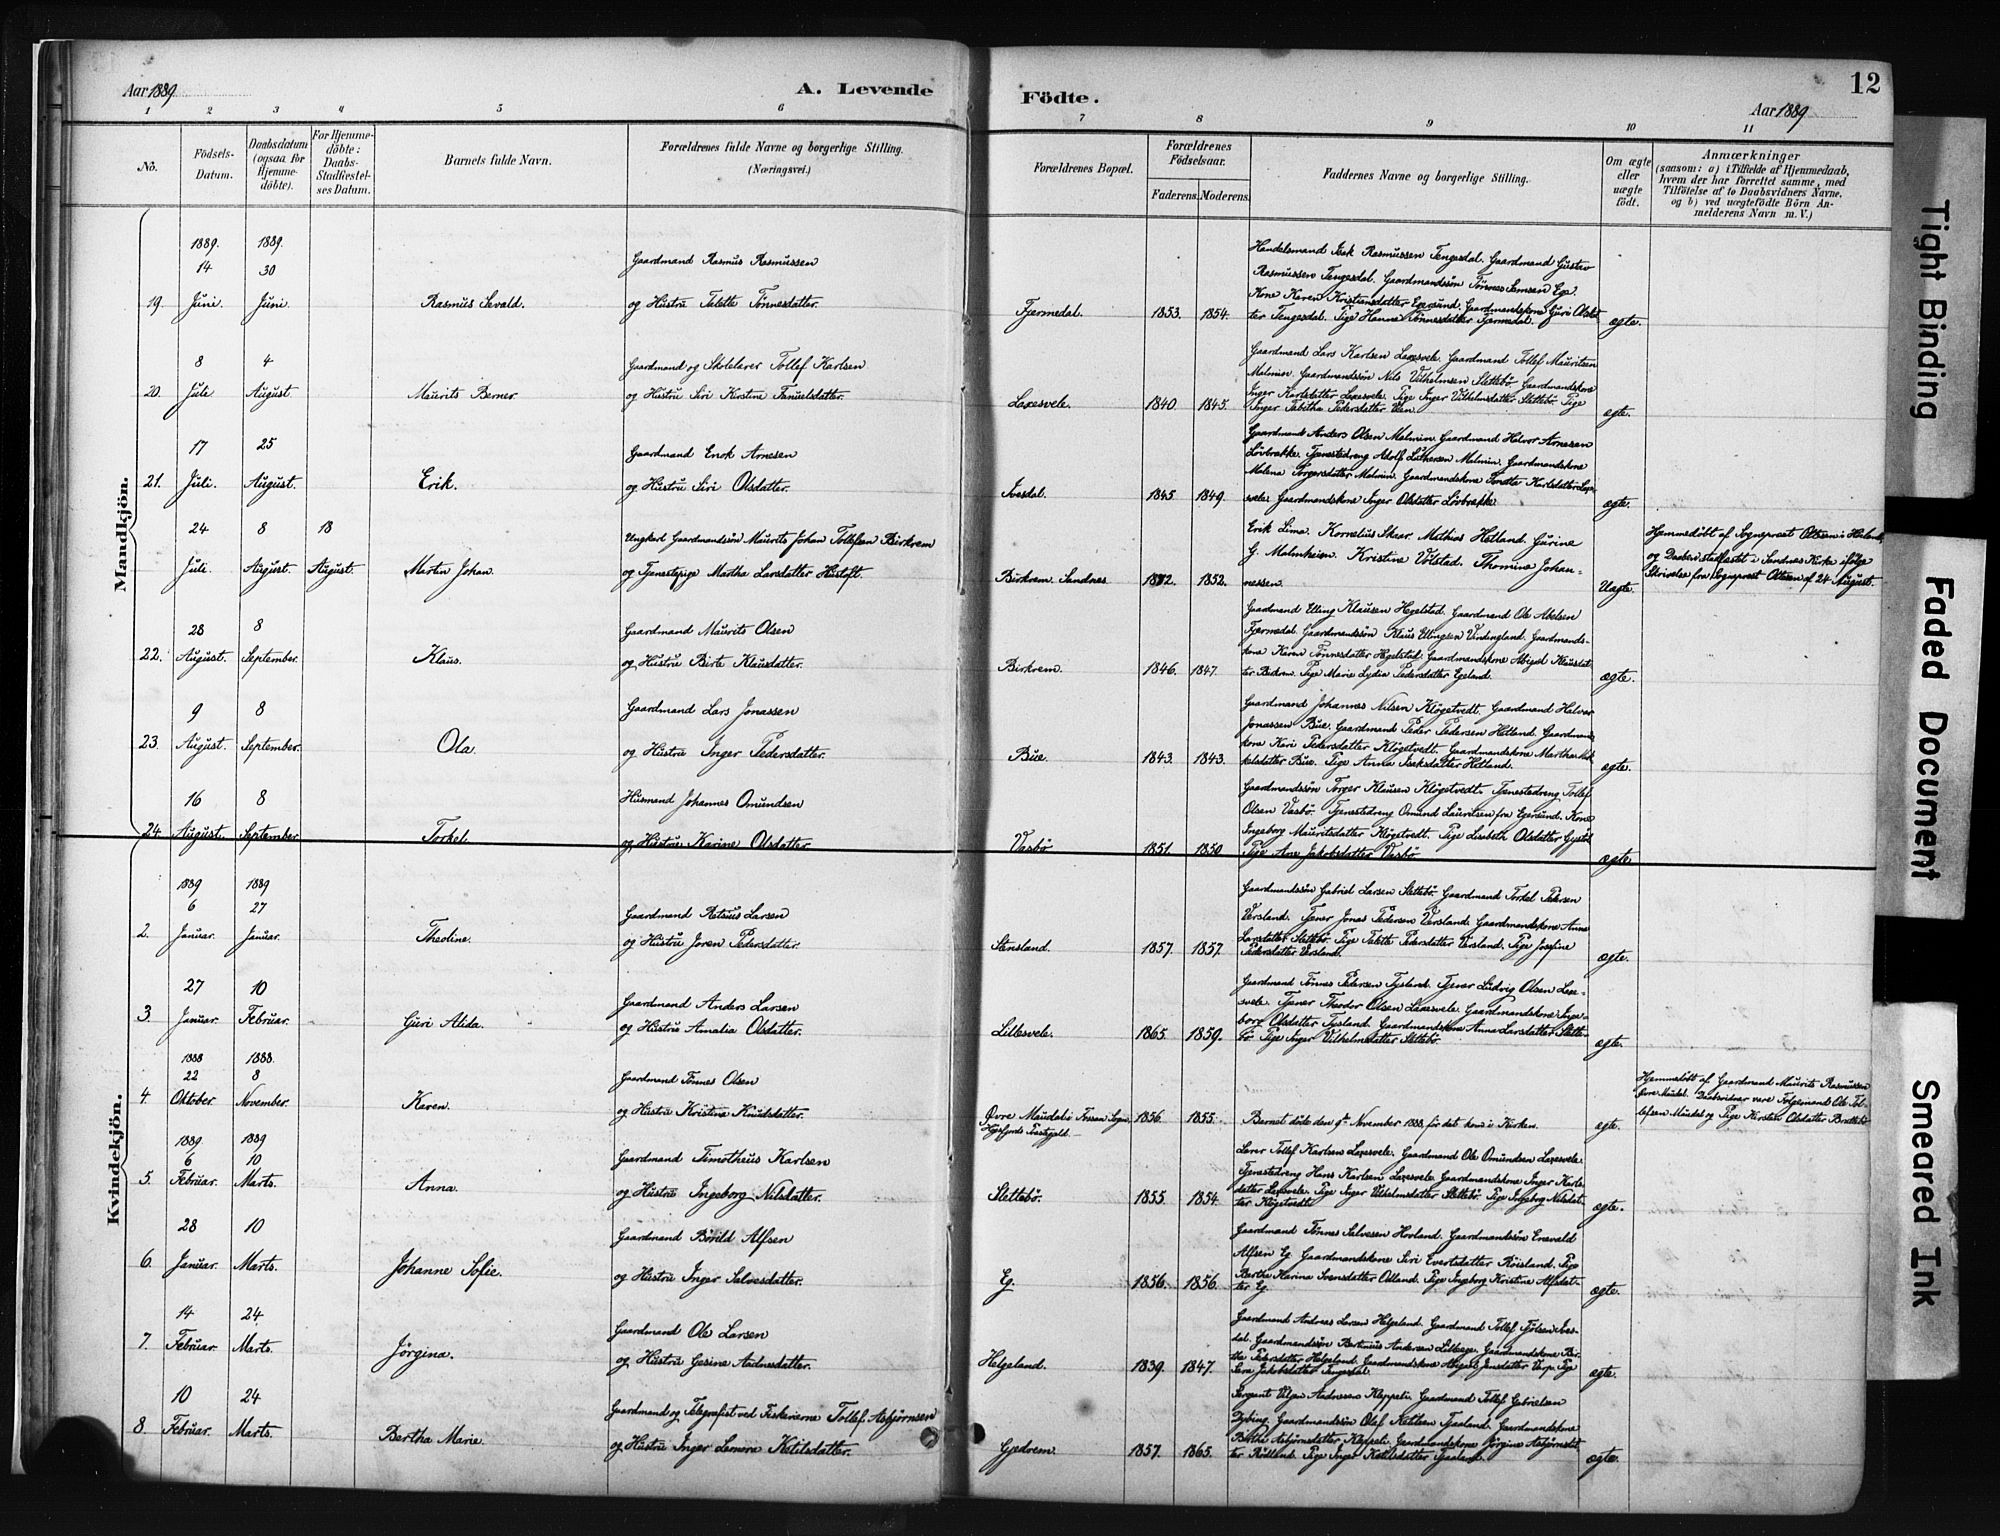 Aar 1889
A. Levende
Födte.
12
Aar 1889
1 2 3 4 5 6 7 8 9 10 11
No.
Födsels-
Datum.
Daabsdatum
(ogsaa for
Hjemme-
döbte).
For Hjemme-
döbte:
Daabs-
Stadfæstel-
ses Datum.
Barnets fulde Navn.
Forældrenes fulde Navne og borgerlige Stilling.
(Næringsvei.)
Forældrenes Bopæl.
Forældrenes
Födselsaar.
Faderens. Moderens.
Faddernes Navne og borgerlige Stilling.
Om ægte
eller
uægte
födt.
Anmærkninger
(saasom: a) i Tilfælde af Hjemmedaab,
hvem der har forrettet samme, med
Tilföielse af to Daabsvidners Navne.
og b) ved uægtefödte Börn An-
melderens Navn m. V.)
Mandkjön.
1889. 1889.
14 30
19. Juni. Juni. Rasmus Sevald.
Gaardmand Rasmus Rasmussen
og Hustru Talette Tönnesdatter.
Fjermedal. 1853. 1854.
Handelsmand Isak Rasmussen Tengesdal. Gaardmand Gustav
Rasmussen Tengesdal. Gaardmandssön Tönnes Ege.
Kone Karen Kristiansdatter Egersund. Gaardmandskone Guri Olsdat
ter Tengesdal. Pige Hanne Tönnesdatter Fjermedal.
ægte.
8 4
20. Jule August. Maurits Berner.
Gaardmand og Skolelærer Tollef Karlsen
og Hustru Siri Kirstine Fanuelsdatter.
Laxesvele. 1840. 1845.
Gaardmand Lars Karlsen Laxesvele. Gaardmand Tollef Mauritsen
Malmin. Gaardmandssön Nils Vilhelmsen Slettebö. Gaardmandskone
Inger Karlsdatter Laxesvele. Pige Inger Vilhelmsdatter Slettebö. Pige
Inger Tabitha Pedersdatter
ægte.
17 25
21. Juli. August. Erik.
Gaardmand Enok Arnesen
og Hustru Siri Olsdatter.
Ivesdal. 1845 1849.
Gaardmand Anders Olsen Malmin. Gaardmand Halvor Arnesen
Lövbrække. Tjenestedreng Adolf Malmin. Gaardmandskone
Malena Torgersdatter Malmin. Gaardmandskone Karlsdatter Laxe-
svele. Gaardmandskone Inger Olsdatter Lövbrække.
ægte.
24 8 18
Juli. August. August. Martin Johan.
Ungkarl Gaardmandssön Maurits Johan Tollefsen Birkrem
og Tjenestepige Martha Larsdatter Hustoft.
Birkrem. Sandnes 1852.
Erik Lima. Kornelius Skaar. Mathias Hetland. Gurine
G. Malmheien. Kristine Volstad. Thomine Johan-
nessen.
Uægte.
Hjemmedöbt af Sognepræst Ottesen i Höiland,
og Daaben stadfæstet i Sandnes Kirke ifölge
Skrivelse fra Sognepræst Ottesen af 24 August.
28 8
22. August. September. Klaus.
Gaardmand Maurits Olsen
og Hustru Birte Klausdatter.
Birkrem. 1846. 1847.
Gaardmand Elling Klausen Hegelstad. Gaardmand Ole Abelsen
Fjermedal. Gaardmandssön Klaus Ellingsen Vindingland. Gaardmands-
kone Karen Tönnesdatter Hegelstad. Gaardmandskone Abigael Klausdat
ter Birkrem. Pige Marie Lydia Pedersdatter Egeland.
ægte.
9 8
23. August. September. Ola.
Gaardmand Lars Jonassen
og Hustru Inger Pedersdatter.
Bue. 1843. 1843.
Gaardmand Johannes Nilsen Klögetvedt. Gaardmand Halvor
Jonassen Bue. Gaardmand Peder Pedersen Hetland. Gaardmands
kone Kari Pedersdatter Klögetvedt. Gaardmandskone Martha Mik
kelsdatter Bue. Pige Anna Isaksdatter Hetland.
ægte.
16 8
24. August. September. Torkel.
Husmand Johannes Omundsen
og Hustru Karine Olsdatter.
Vasbö 1851. 1850
Gaardmandssön Torger Klausen Klögetvedt. Tjenestedreng Tollef
Olsen Vasbö. Tjenestedreng Omund Lauritsen fra Egersund. Kone
Ingeborg Mauritsdatter Klögetvedt. Pige Lisebeth Olsdatter
Pige Ane Jakobsdatter Vasbö
ægte.
Kvindekjön.
1889 1889
6 27
2. Januar. Januar. Theoline.
Gaardmand Larsen
og Hustru Joren Pedersdatter.
Stensland. 1857. 1857.
Gaardmandssön Gabriel Larsen Slettebö. Gaardmand Torkel Pedersen
Versland. Tjener Jonas Pedersen Versland. Gaardmandskone Anna
Larsdatter Slettebö. Pige Talette Pedersdatter Versland. Pige Josefine
Pedersdatter Versland.
ægte.
27 10
3. Januar. Februar. Guri Alida.
Gaardmand Anders Larsen
og Hustru Amalia Olsdatter.
Lillesvele. 1865. 1859.
Gaardmand Tönnes Pedersen Tysland. Tjener Ludvig Olsen Laxe-
svele. Tjener Theodor Olsen Laxesvele. Gaardmandskone Inge-
borg Olsdatter Tysland. Gaardmandskone Anna Larsdatter Slette-
bö. Pige Inger Vilhelmsdatter Slettebö.
ægte.
1888 1888.
22 8
4. Oktober November. Karen.
Gaardmand Tönnes Olsen
og Hustru Kristine Knudsdatter.
Øvre Maudal Sogn
Præstegjeld. 1856. 1855.
Barnet döde den 9de November 1888, för det kom i Kirken.
ægte.
Hjemmedöbt af Gaardmand Maurits Rasmussen
Øvre Maudal. Daabsvidner vare Ole Tol-
lefsen Maudal og Pige Kirsten Olsdatter
1889 1889
6 10
5. Februar. Marts. Anna.
Gaardmand Timotheus Karlsen
og Hustru Ingeborg Nilsdatter.
Slettebö. 1855 1854.
Lærer Tollef Karlsen Laxesvele. Gaardmand Ole Omundsen Laxesvele.
Tjenestedreng Hans Karlsen Laxesvele. Gaardmandskone Inger Karls-
datter Laxesvele. Pige Inger Vilhelmsdatter Slettebö. Pige Ingeborg Nilsdat-
ter Klögetvedt.
ægte.
28 10
6. Januar. Marts. Johanne Sofie.
Gaardmand Börild Alfsen
og Hustru Inger Salvesdatter.
Eg. 1856. 1856.
Gaardmand Tönnes Salvesen Hovland. Gaardmandssön Enevald
Alfsen Eg. Gaardmandskone Siri Evertsdatter Röisland. Pige
Berthe Karina Svensdatter Odland. Pige Ingeborg Kristine Alfsdat-
ter Eg.
ægte.
14 24.
7. Februar. Marts. Jörgina.
Gaardmand Ole Larsen
og Hustru Gesine Aadnesdatter.
Helgeland. 1839. 1847.
Gaardmand Andreas Larsen Helgeland. Gaardmand Tollef Ives-
dal. Gaardmandssön Bertinius Andersen Gaardmandskone Ber-
tha Pedersdatter Helgeland. Gaardmandskone Abigael Jensdatter Pige
Sara Jakobsdatter Tengesdal.
ægte.
10 24
8. Februar. Marts. Bertha Marie.
Gaardmand og Telegrafist ved Fiskerierne Tollef Asbjörnsen
og Hustru Inger Lenora Ketilsdatter.
Gjedrem. 1857. 1865.
Sergent Aadnesen Kleppeli. Gaardmand Tollef Gabrielsen
Dybing. Gaardmandssön Olaf Ketilsen Tjaaland. Gaardmandskone
Birthe Asbjörnsdatter Kleppeli. Gaardmandskone Jörgine Asbjörnsdat
ter Rödland. Pige Inger Ketilsdatter Tjaaland.
ægte.
Tight Binding
Faded Document
Smeared Ink